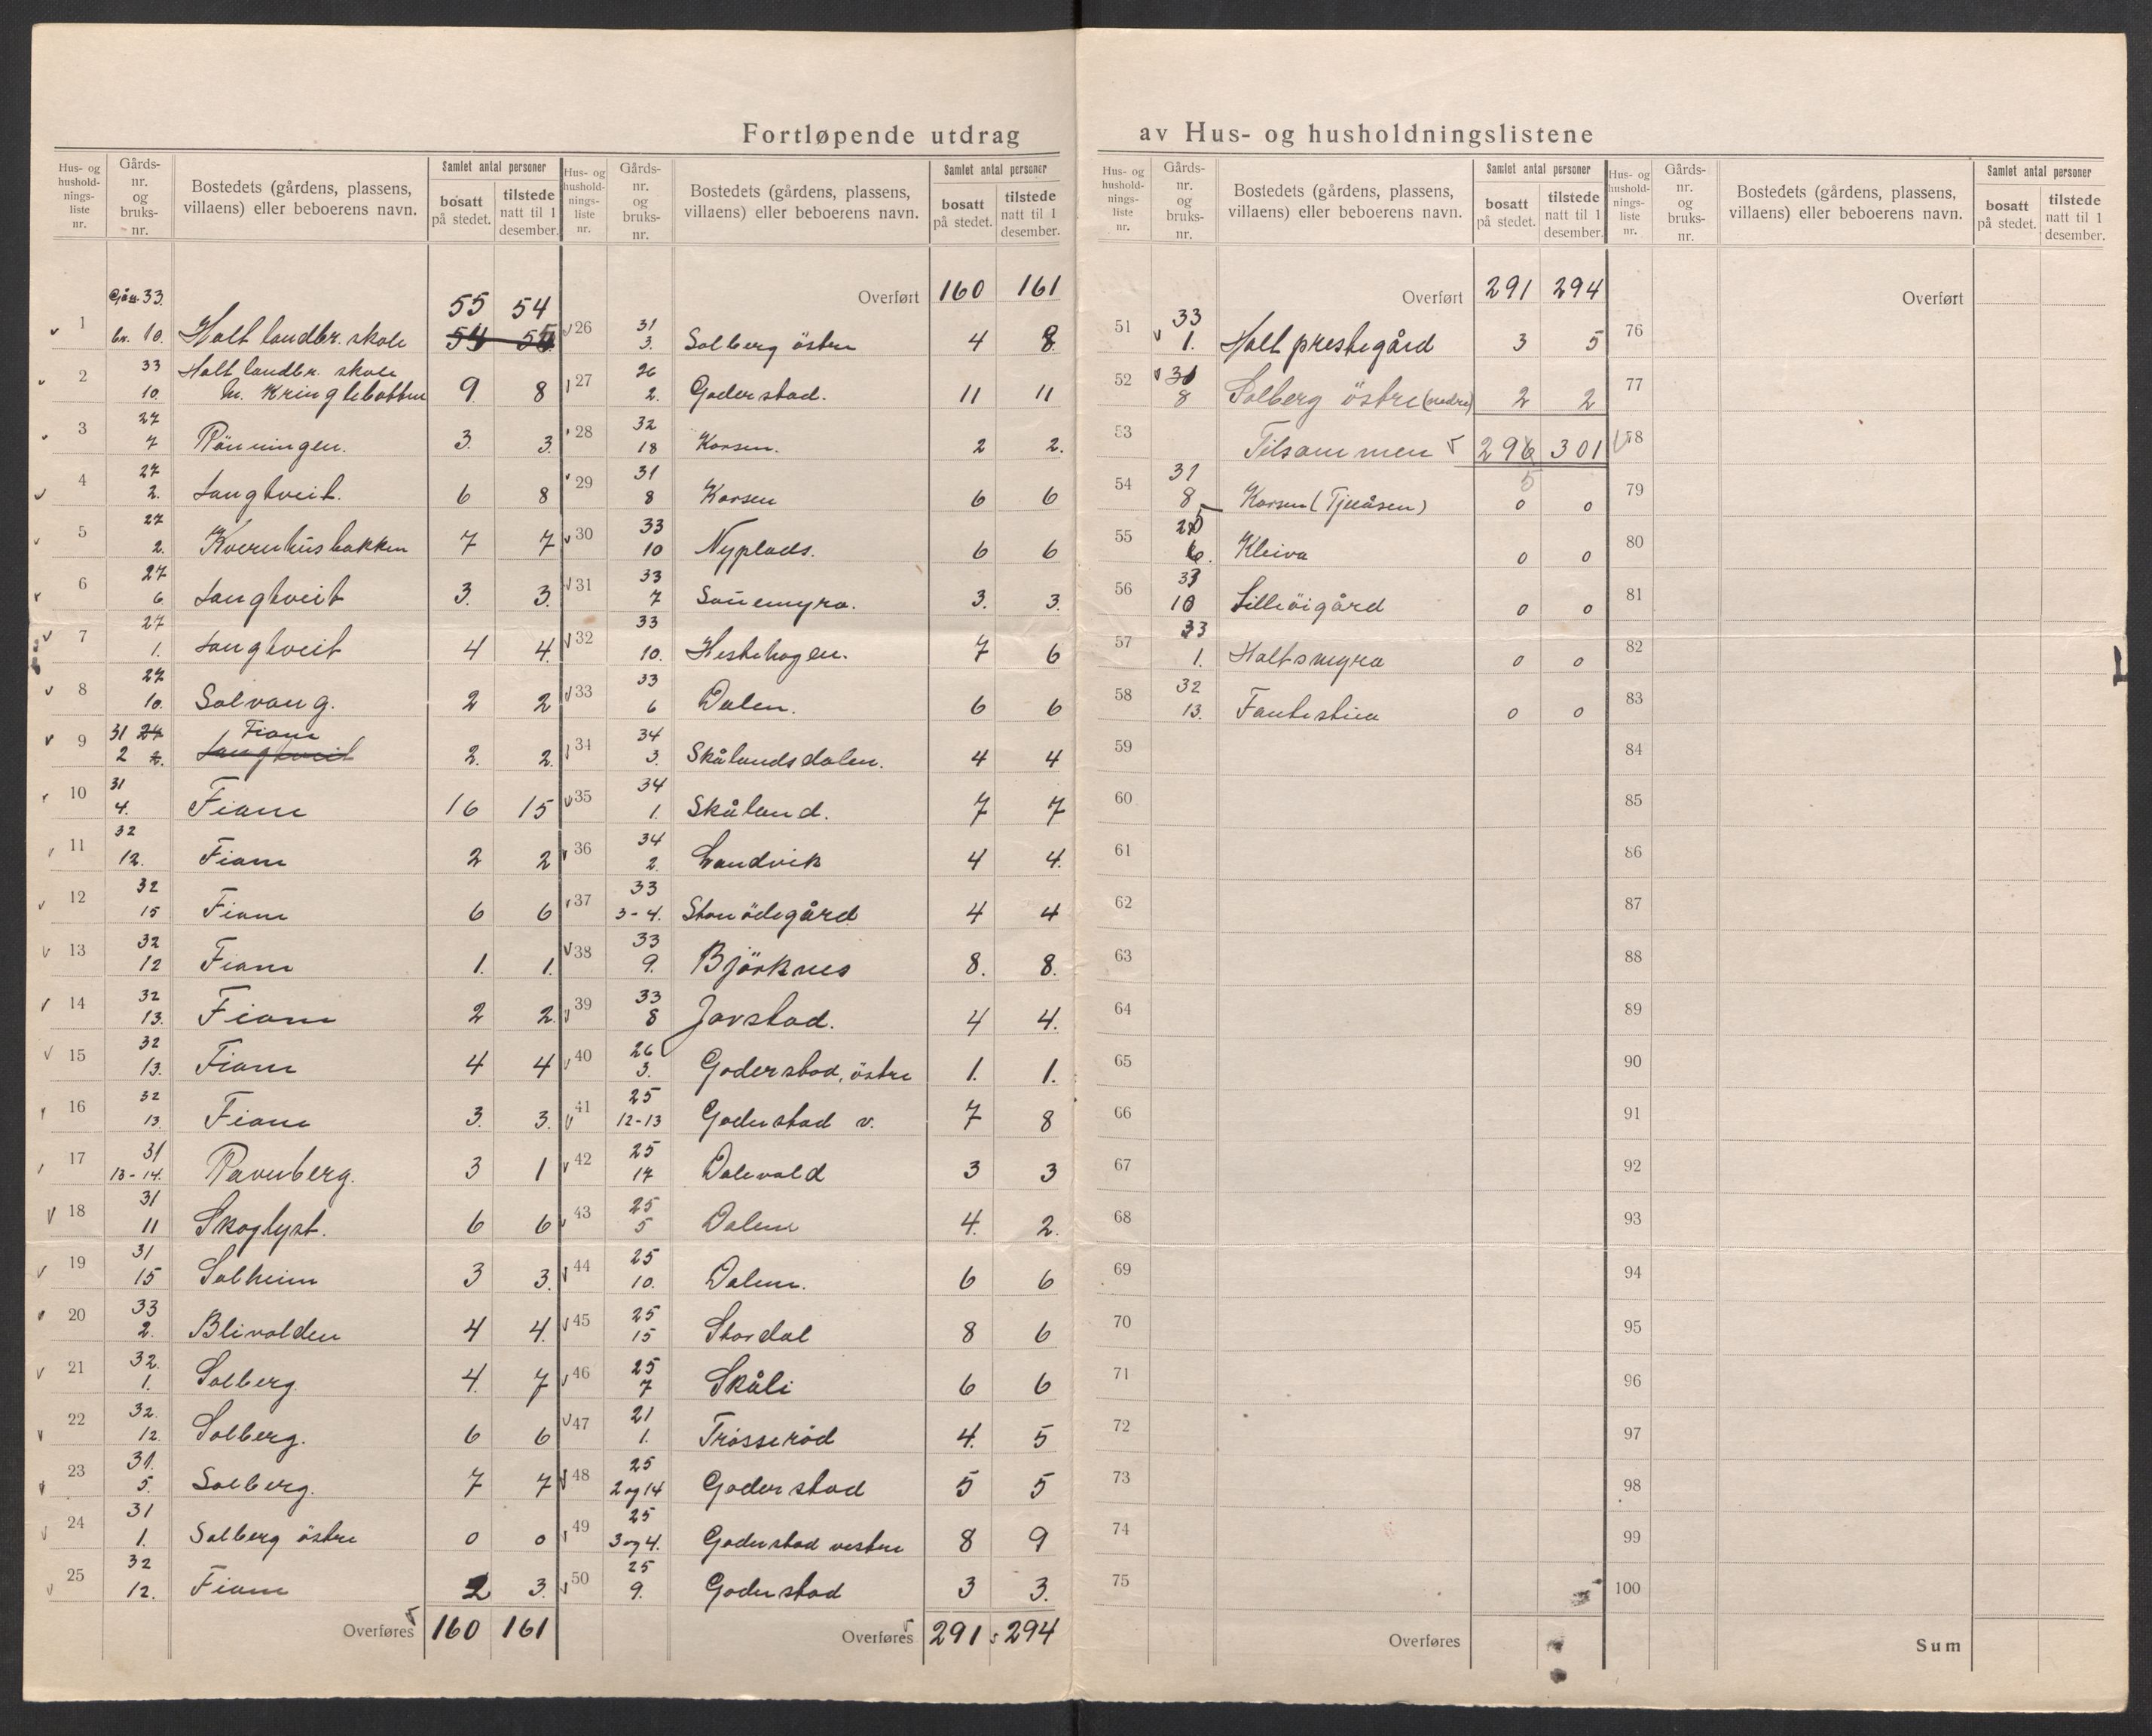 Fortløpende utdrag av Hus- og husholdningslistene
Hus- og hushold-nings-liste nr. | Gårds-nr. og bruks-nr. | Bostedets (gårdens, plassens, villaens) eller beboerens navn. | Samlet antal personer | bosatt på stedet. | tilstede natt til 1 desember.
Går. 33. 55 54
1 | bn. 10. | Holt landbr. skole | 54 55
2 | 33 10. | Holt landbr. skole m. Kringlebotten | 9 | 8
3 | 27 7 | Rönningen. | 3. | 3.
4 | 27 2. | Langtveit. | 6 | 8
5 | 27 2. | Kvernhusbakken | 7 | 7
6 | 27 6 | Langtveit | 3. | 3.
7 | 27 1. | Langtveit | 4 | 4.
8 | 27 10. | Solvang. | 2 | 2
9 | 31 27 2 2. | Fiane Langtveit | 2. | 2.
10 | 31 4. | Fiane | 16 | 15
11 | 32 12. | Fiane | 2 | 2
12 | 32 15 | Fiane | 6 | 6
13 | 32 12 | Fiane | 1. | 1.
14 | 32 13. | Fiane | 2 | 2.
15 | 32 13. | Fiane | 4 | 4
16 | 32 13. | Fiane | 3. | 3.
17 | 31 13-14. | Ravneberg. | 3 | 1
18 | 31 11 | Skoglyst. | 6 | 6
19 | 31 15 | Solheim | 3 | 3.
20 | 33 2. | Blivolden | 4 | 4.
21 | 32. 1. | Solberg | 4. | 7
22 | 32. 12. | Solberg. | 6 | 6
23 | 31. 5. | Solberg. | 7 | 7
24 | 31 1. | Solberg östre | 0 | 0
25 | 32 12. | Fiane | 2 | 3.
Overføres 160 161
Hus- og hushold-nings-liste nr. | Gårds-nr. og bruks-nr. | Bostedets (gårdens, plassens, villaens) eller beboerens navn. | Samlet antal personer | bosatt på stedet. | tilstede natt til 1 desember.
Overført 160 161
26 | 31 3. | Solberg östre | 4 | 8.
27 | 26 2. | Goderstad. | 11 | 11
28 | 32 18 | Korsen. | 2 | 2.
29 | 31 8 | Korsen | 6 | 6
30 | 33 10 | Nyplads. | 6 | 6
31 | 33 7 | Sauemyra. | 3. | 3.
32 | 33 10. | Hestehagen. | 7 | 6
33 | 33 6 | Dalen. | 6 | 6
34 | 34 3. | Skålandsdalen. | 4 | 4
35 | 34 1. | Skåland. | 7 | 7
36 | 34 2 | Landvik | 4 | 4.
37 | 33 3-4. | Stonödegård | 4 | 4
38 | 33 9. | Björknes | 8. | 8.
39 | 33 8 | Jovstad. | 4 | 4.
40 | 26 3. | Goderstad, östre | 1. | 1.
41 | 25 12-13 | Goderstad v. | 7 | 8
42 | 25 17 | Dalevold | 3 | 3
43 | 25 5 | Dalene | 4. | 2.
44 | 25 10. | Dalene. | 6 | 6
45 | 25 15 | Stordal | 8 | 6
46 | 25 7 | Skåli | 6 | 6
47 | 21 1. | Trosseröd | 4. | 5
48 | 25 2 og 14 | Goderstad | 5 | 5
49 | 25 3 og 4. | Goderstad vestre | 8 | 9
50 | 25 9. | Goderstad | 3 | 3.
Overføres 291 294
Hus- og hushold-nings-liste nr. | Gårds-nr. og bruks-nr. | Bostedets (gårdens, plassens, villaens) eller beboerens navn. | Samlet antal personer | bosatt på stedet. | tilstede natt til 1 desember.
Overført 291 294
51 | 33 1. | Holt prestegård | 3 | 5
52 | 31 8 | Solberg östre (nedre) | 2 | 2
53 | Tilsammen | 296 | 301
5
54 | 31 8 | Korsen (Tjellåsen) | 0 | 0
55 | 25 6. | Kleiva | 0 | 0
56 | 33 10 | Lilleöigård | 0 | 0
57 | 33 1. | Holtsmyra | 0 | 0
58 | 32 13. | Fantestien | 0 | 0
59
60
61
62
63
64
65
66
67
68
69
70
71
72
73
74
75
Overføres
Hus- og hushold-nings-liste nr. | Gårds-nr. og bruks-nr. | Bostedets (gårdens, plassens, villaens) eller beboerens navn. | Samlet antal personer | bosatt på stedet. | tilstede natt til 1 desember.
Overført
76
77
78
79
80
81
82
83
84
85
86
87
88
89
90
91
92
93
94
95
96
97
98
99
100
Sum